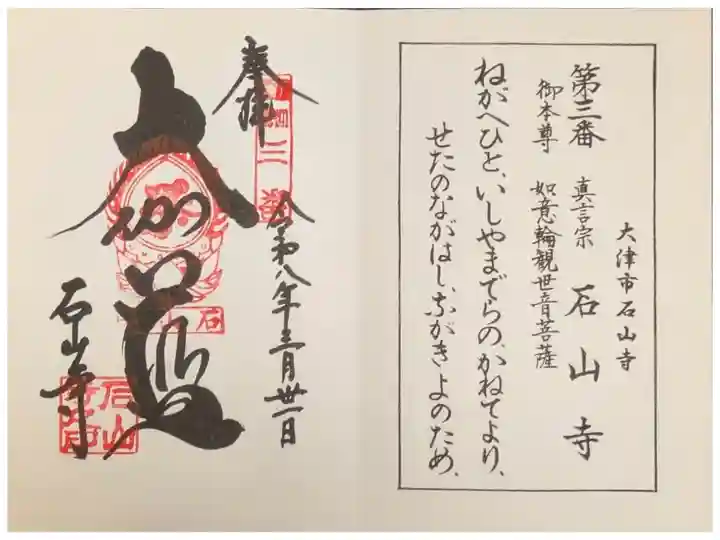 大津市石山寺
第三番 真言宗 石山寺
御本尊 如意輪観世音菩薩
ねがへひと、いしやまでらの、かねてより、
せたのながはし、ながきよのため、
奉拝
令和八年三月卅一日
大伽藍
石山寺